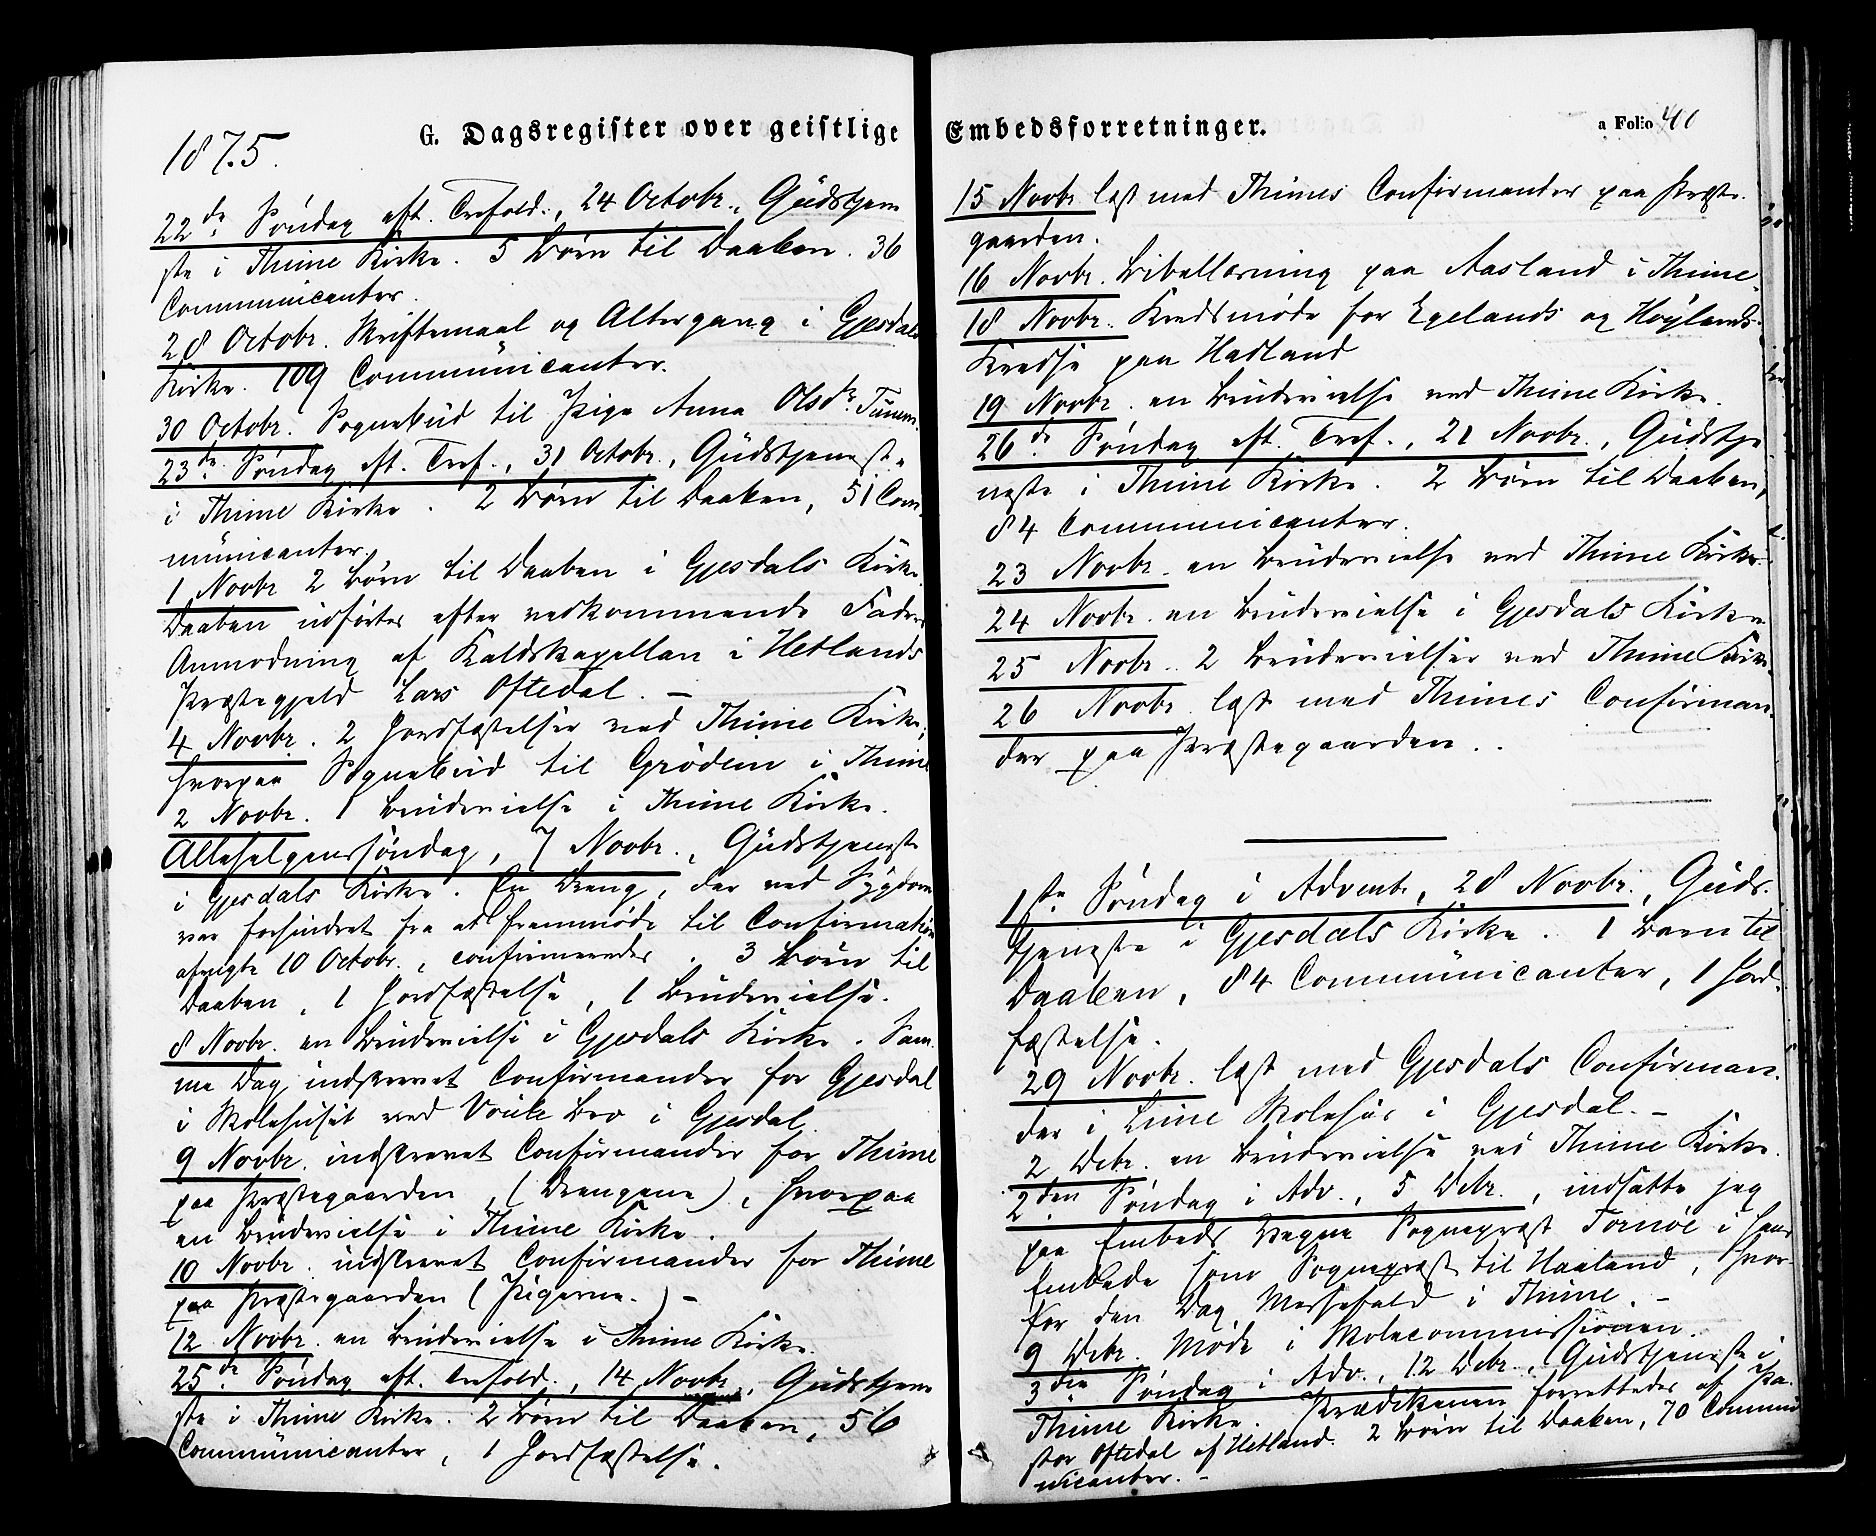 G. Dagsregister over geistlige
1875.
22de Søndag eft. Trefold., 24 Octobr., Gudstjene
ste i Thime Kirke. 5 Børn til Daaben. 36
Communicanter.
28 Octobr. Skriftemaal og Altergang i Gjesdals
Kirke. 109 Communicanter.
30 Octobr. Sognebud til Pige Anna Olsdr.
23de Søndag eft. Tref., 31 Octobr., Gudstjeneste
i Thime Kirke. 2 Børn til Daaben, 51 Com
municanter.
1 Novbr 2 Børn til Daaben i Gjesdals Kirke.
Daaben udførtes efter vedkommende Fædres
Anmodning af Kaldskapellan i Hetlands
Præstegjeld Lars Oftedal. –
4 Novbr. 2 Jordfæstelser ved Thime Kirke,
hvorpaa Sognebud til Grødem i Thime
2 Novbr. 1 Brudevielse i Thime Kirke.
Allehelgenssøndag, 7 Novbr., Gudstjeneste
i Gjesdals Kirke. En Dreng, der ved Sygdom
var forhindret fra at fremmøde til Confirmation
afvigte 10 Octobr., confirmeredes. 3 Børn til
Daaben, 1 Jordfæstelse, 1 Brudevielse.
8 Novbr. en Brudevielse i Gjesdals Kirke. Sam
me Dag indskrevet Confirmander for Gjesdal
i Skolehuset ved Bro i Gjesdal.
9 Novbr. indskrevet Confirmander for Thime
paa Præstegaarden, (Drengene), hvorpaa
en Brudevielse i Thime Kirke.
10 Novbr. indskrevet Confirmander for Thime
paa Præstegaarden (Pigerne.) –
12 Novbr. en Brudevielse i Thime Kirke.
25de Søndag eft. Trefold., 14 Novbr., Gudstjene
ste i Thime Kirke. 2 Børn til Daaben, 56
Communicanter, 1 Jordfæstelse.
Embedsforretninger.
a Folio 40
15 Novbr læst med Thimes Confirmander paa Præste
gaarden.
16 Novbr. Bibellæsning paa Aasland i Thime.
18 Novbr. Kredsmøde for Egelands og Høylands
Kredse paa Hadland
19 Novbr. en Brudevielse ved Thime Kirke.
26de Søndag eft. Tref., 21 Novbr., Gudstje
neste i Thime Kirke. 2 Børn til Daaben,
84 Communicanter.
23 Novbr. en Brudevielse ved Thime Kirke.
24 Novbr. en Brudevielse i Gjesdals Kirke
25 Novbr. 2 Brudevielser ved Thime Kirke.
26 Novbr. læst med Thimes Confirman
der paa Præstegaarden.
1ste Søndag i Advent, 28 Novbr., Guds
tjeneste i Gjesdals Kirke. 1 Barn til
Daaben, 84 Communicanter, 1 Jord
fæstelse.
29 Novbr. læst med Gjesdals Confirman
der i Lime Skolehus i Gjesdal. –
2 Debr. en Brudevielse ved Thime Kirke.
2den Søndag i Adv., 5 Debr., indsatte jeg
paa Embeds Vegne Sognepræst Tornøe i hans
Embede som Sognepræst til Haaland, hvor
for den Dag Messefald i Thime. –
9 Debr. Møde i Skolecommissionen.
3die Søndag i Adv., 12 Debr., Gudstjeneste i
Thime Kirke. Prædikenen forrettedes af Pa
stor Oftedal af Hetland. 2 Børn til Daaben, 70 Commu
nicanter. –